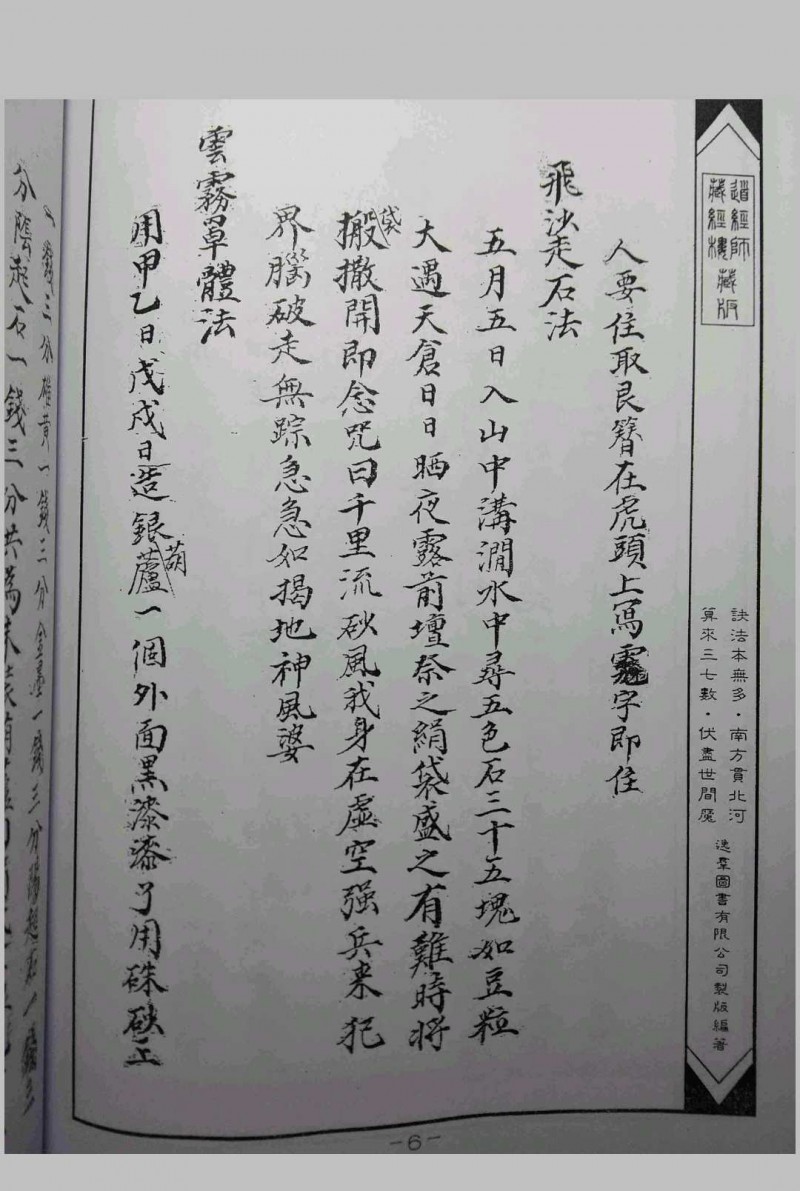 道經師
藏經樓藏版
訣法本無多·南方貫北河
算來三七數·伏盡世間魔
逸羣圖書有限公司製版編著
人要住取艮簪在虎頭上寫字即住
飛沙走石法
五月五日入山中溝澗水中尋五色石三十五塊如豆粒
大遇天倉日日晒夜露前壇祭之絹袋盛之有難時將
袋搬撒開即念咒曰千里流砂風我身在虛空强兵来犯
界腦破走無踪急急如揭地神風婆
雲霧罩體法
用甲乙日戊戌日造銀葫蘆一個外面黑漆漆了用硃砂
三分雄黄一錢三分金墨一錢三分陽起石一錢三
分陰起石一錢三分共為末裝
-6-